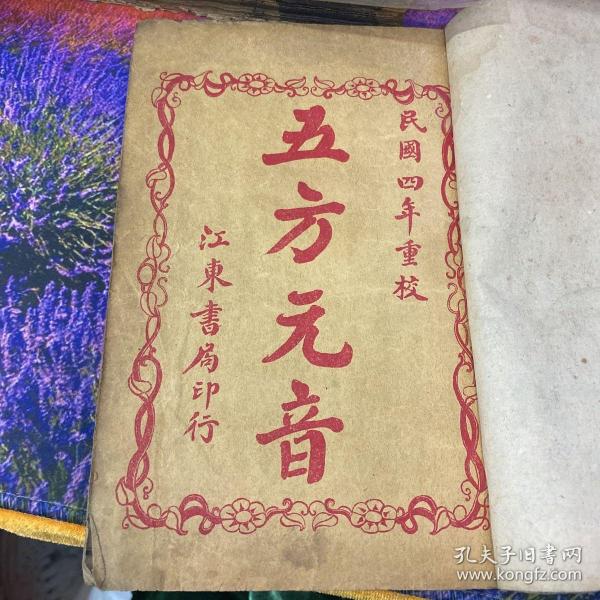 民國四年重校
五方元音
江東書局印行
孔夫子旧书网
www.kongfz.com